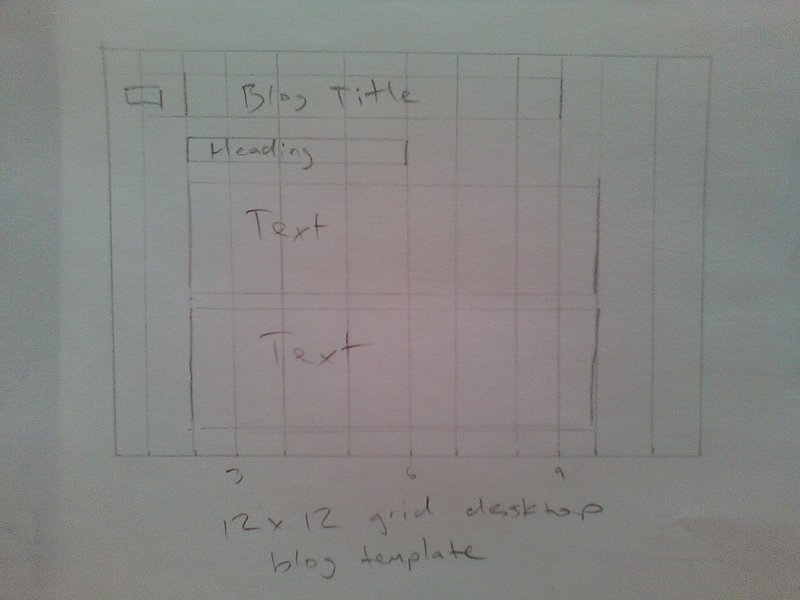 Blog Title
Heading
Text
Text
3 6 9
12 x 12 grid desktop
blog template